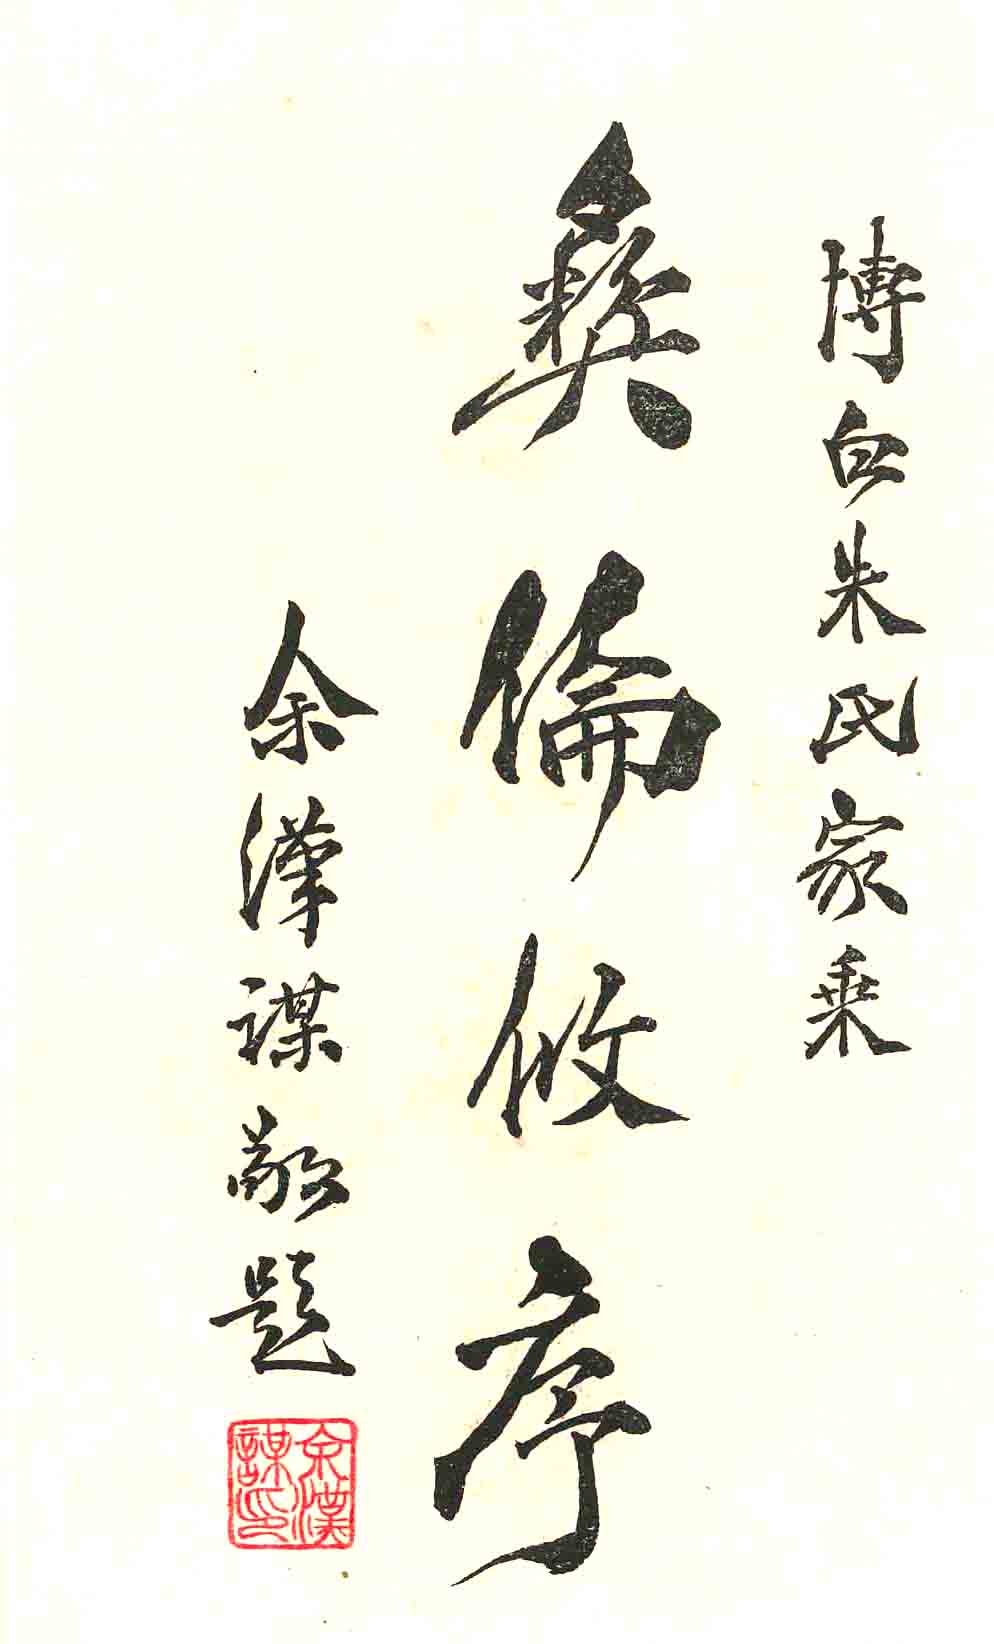 博白朱氏家乘
彝倫攸序
余漢謀敬題
余漢
謀印